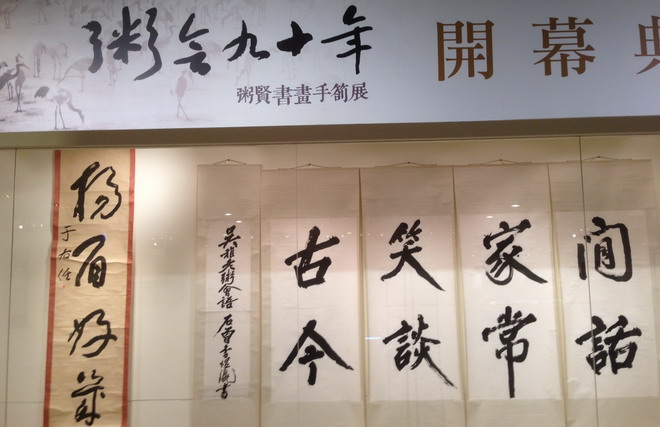 粥会九十年
開幕典
粥賢書畫手簡展
閒話
家常
笑談
古今
吳稚老粥會語 石曾李煜瀛書
于右任